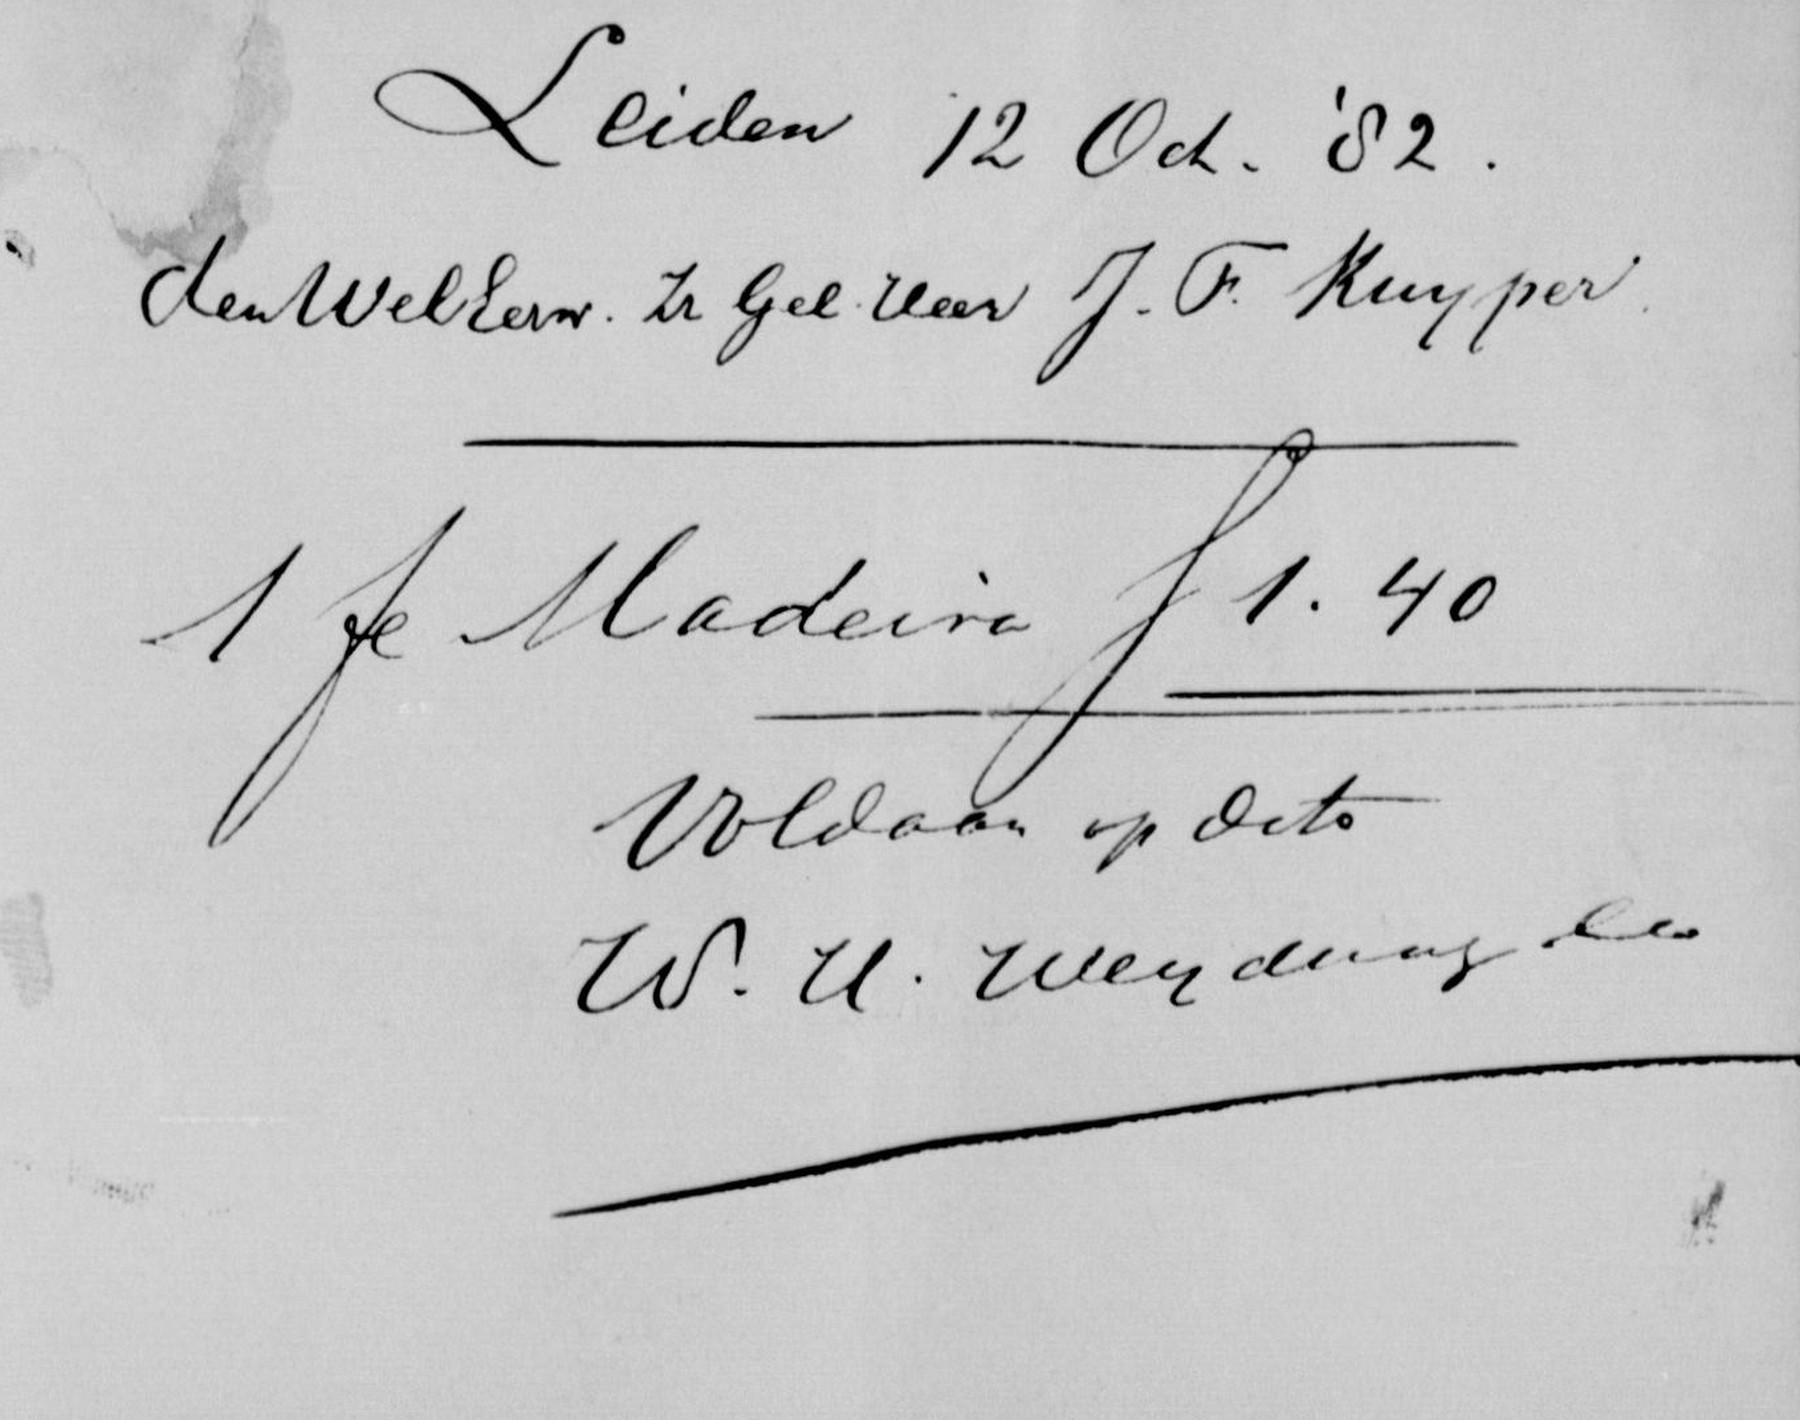 Leiden 12 Oct. '82.
den WelEerw. Zr Gel. Heer J. F. Kuyper.
1 fe Madeira f 1.40
Voldaan op dato
W. H.